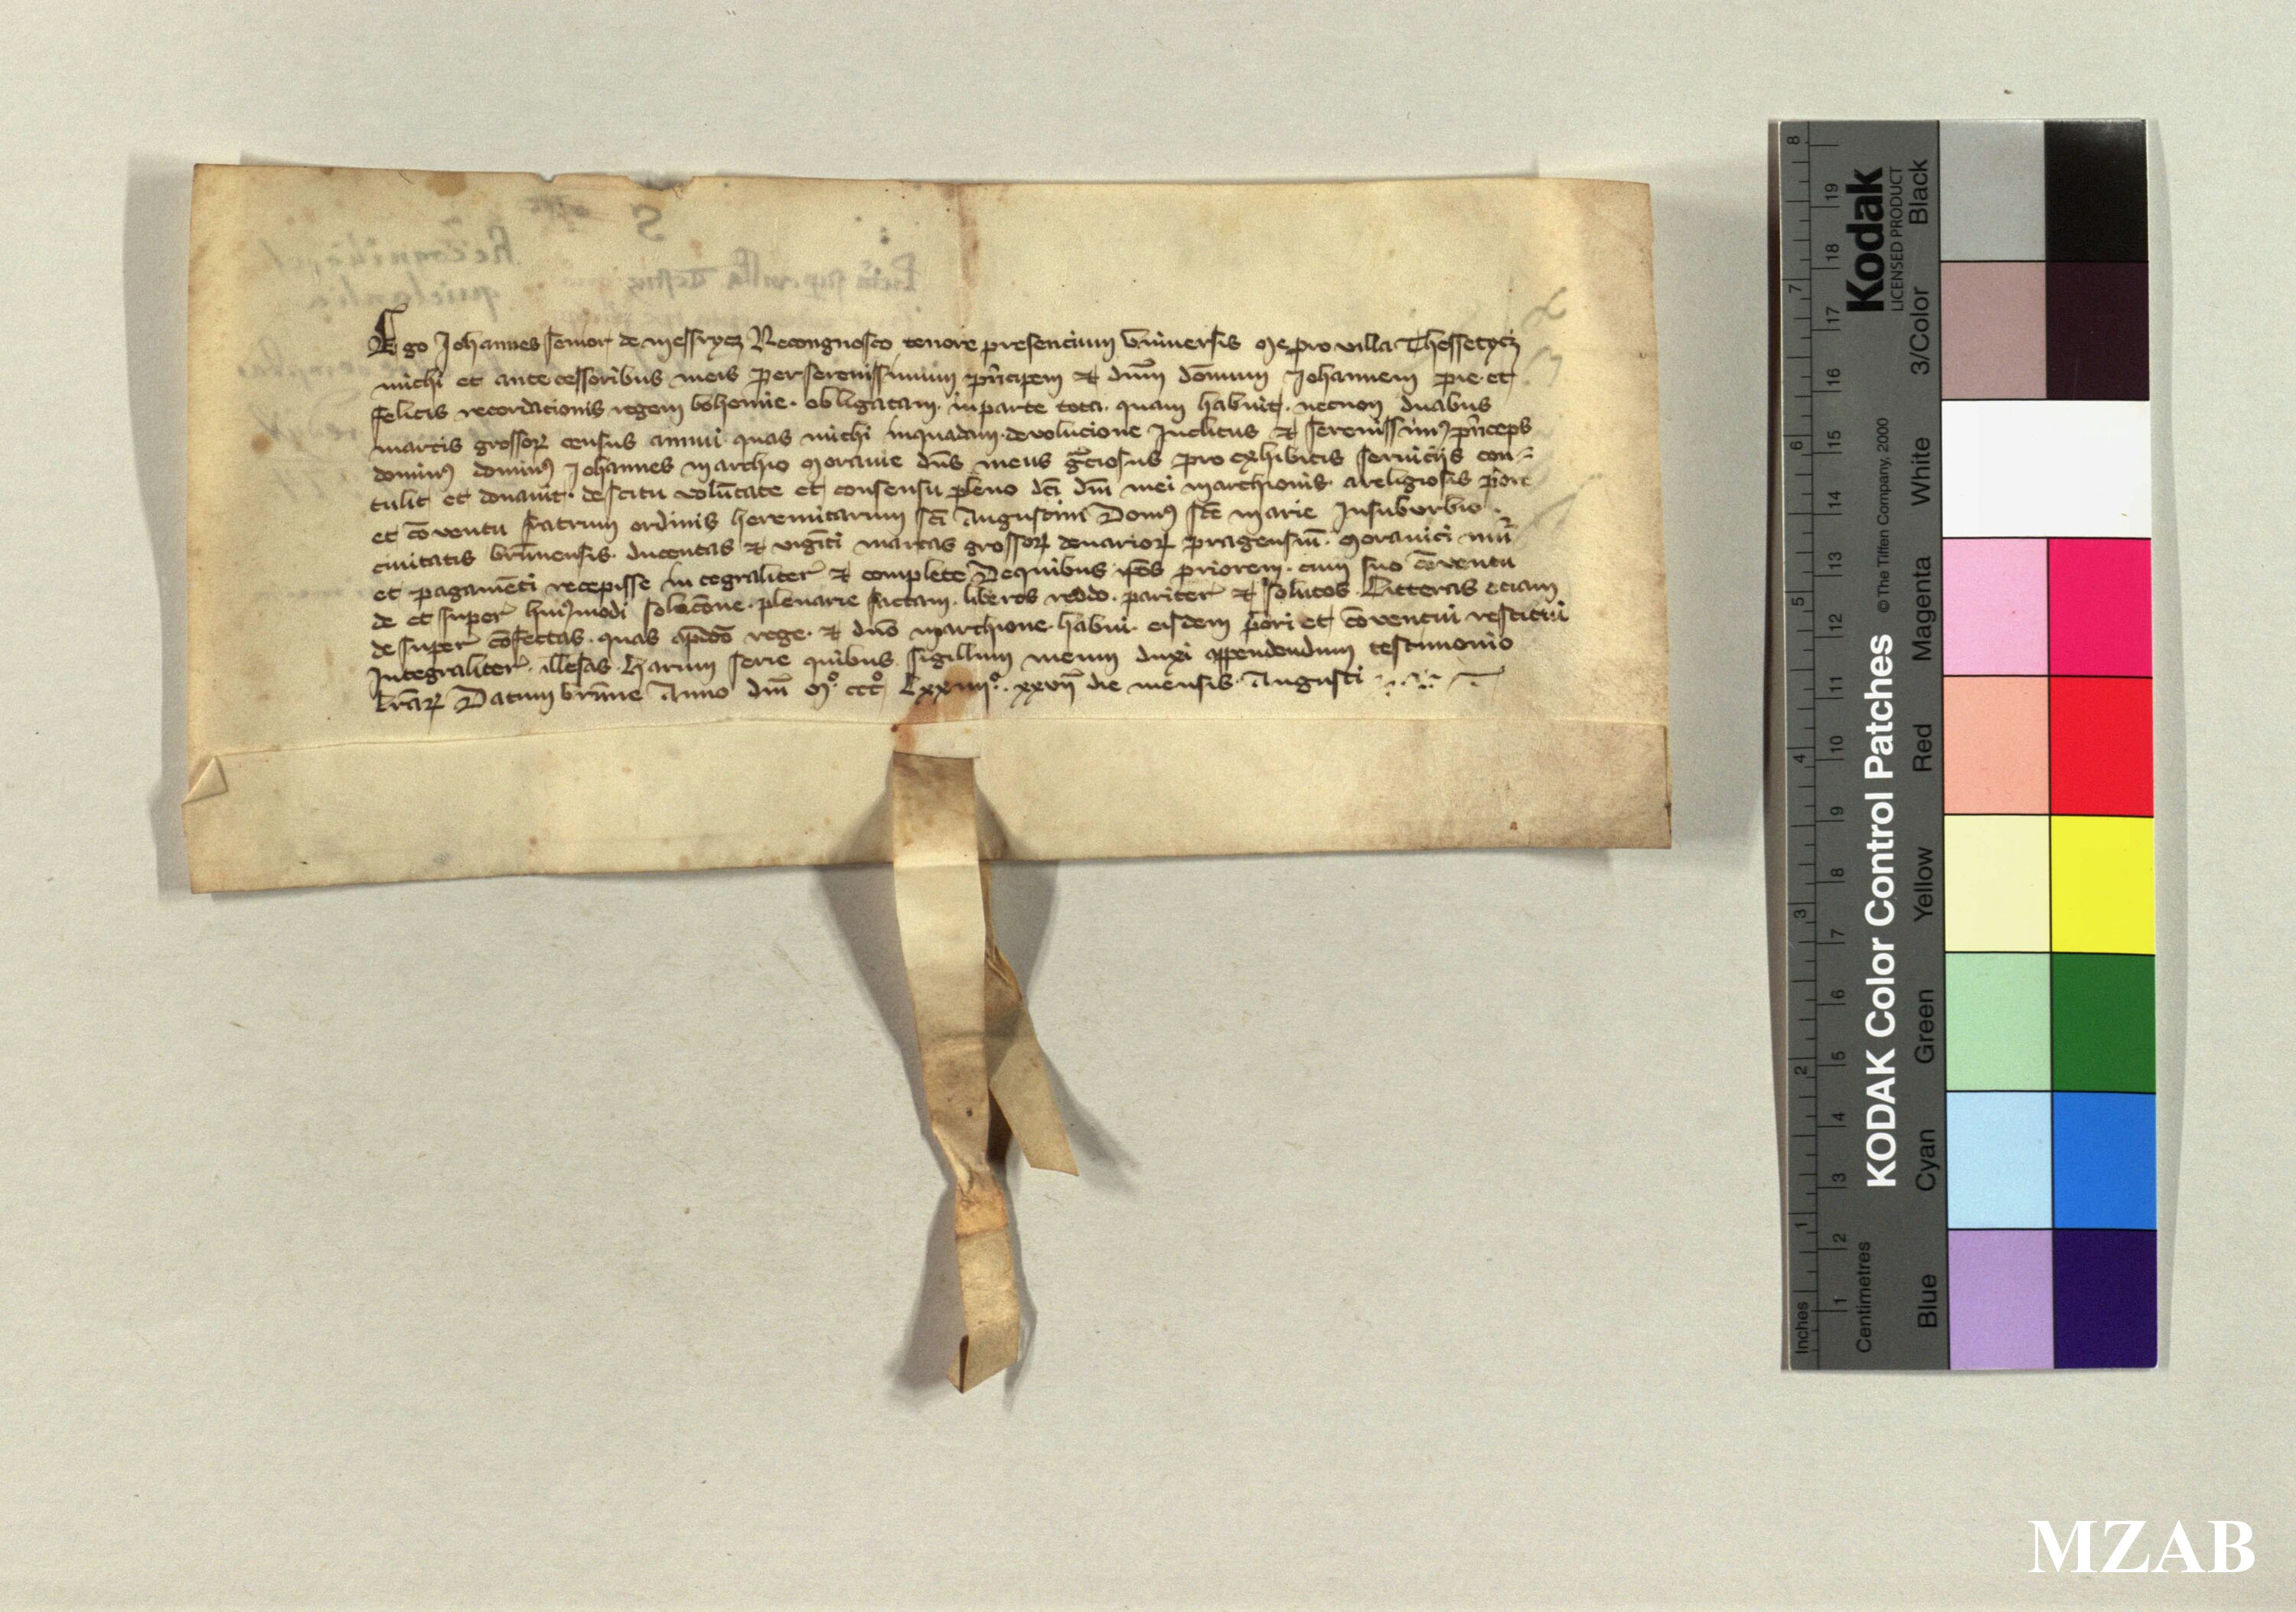 Ego Johannes senior de messrycz Recongnosco tenore presencium vniuersis Me pro villa Thessetycz
michi et ante cessoribus meis per serenissimum pn̄cipem et dnm̄ domnum Johannem pie et
felicis recordacionis regem bohemie · obligatam · in parte tota · quam habuit · necnon duabus
marcis grossoꝝ census annui quas michi in quadam · devolucione Inclitus et serenissimꝰ pn̄ceps
dominꝰ dominꝰ Johannes marchio Moravie dn̄s meus gr̄ciosus pro exhibitis seruicijs con⸗
tulit et donauit · de scitu volūtate et consensu pleno dc̄i dn̄i mei marchionis a religiosis p̄ore
et cōventu fratrum ordinis heremitarum sc̄i Augustini Domꝰ sc̄e marie In suburbio
ciuitatis brūnensis · ducentas et vigīti marcas grossoꝝ denarioꝝ pragensiū · Moravici nūi
et pagamēti recepisse in tegraliter et complete De quibus ip̄os priorem · cum suo cōventu
de et super huiꝰmodi solucōne · plenarie factam · liberos reddo · pariter et solutos · Litteras eciam
de super cōfectas · quas a p̄dc̄o rege · et dn̄o marchione · habui · eisdem p̄ori et cōventui restitui
Integraliter · illesas · Harum serie quibus sigillum meum duxi appendendum testimonio
lr̄aꝝ Datum brūne Anno dn̄i Mo · ccco Lxxiiiio · xxvii die mensis · Augusti
Kodak
LICENSED PRODUCT
KODAK Color Control Patches © The Tiffen Company, 2000
Blue Cyan Green Yellow Red Magenta White 3/Color Black
Inches 1 2 3 4 5 6 7 8
Centimetres 1 2 3 4 5 6 7 8 9 10 11 12 13 14 15 16 17 18 19
MZAB